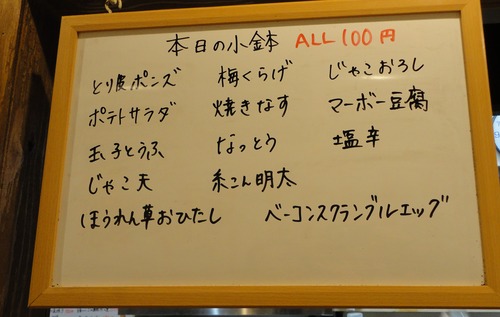 本日の小鉢 ALL 100円
とり皮ポンズ 梅くらげ じゃこおろし
ポテトサラダ 焼きなす マーボー豆腐
玉子とうふ なっとう 塩辛
じゃこ天 糸こん明太
ほうれん草おひたし ベーコンスクランブルエッグ